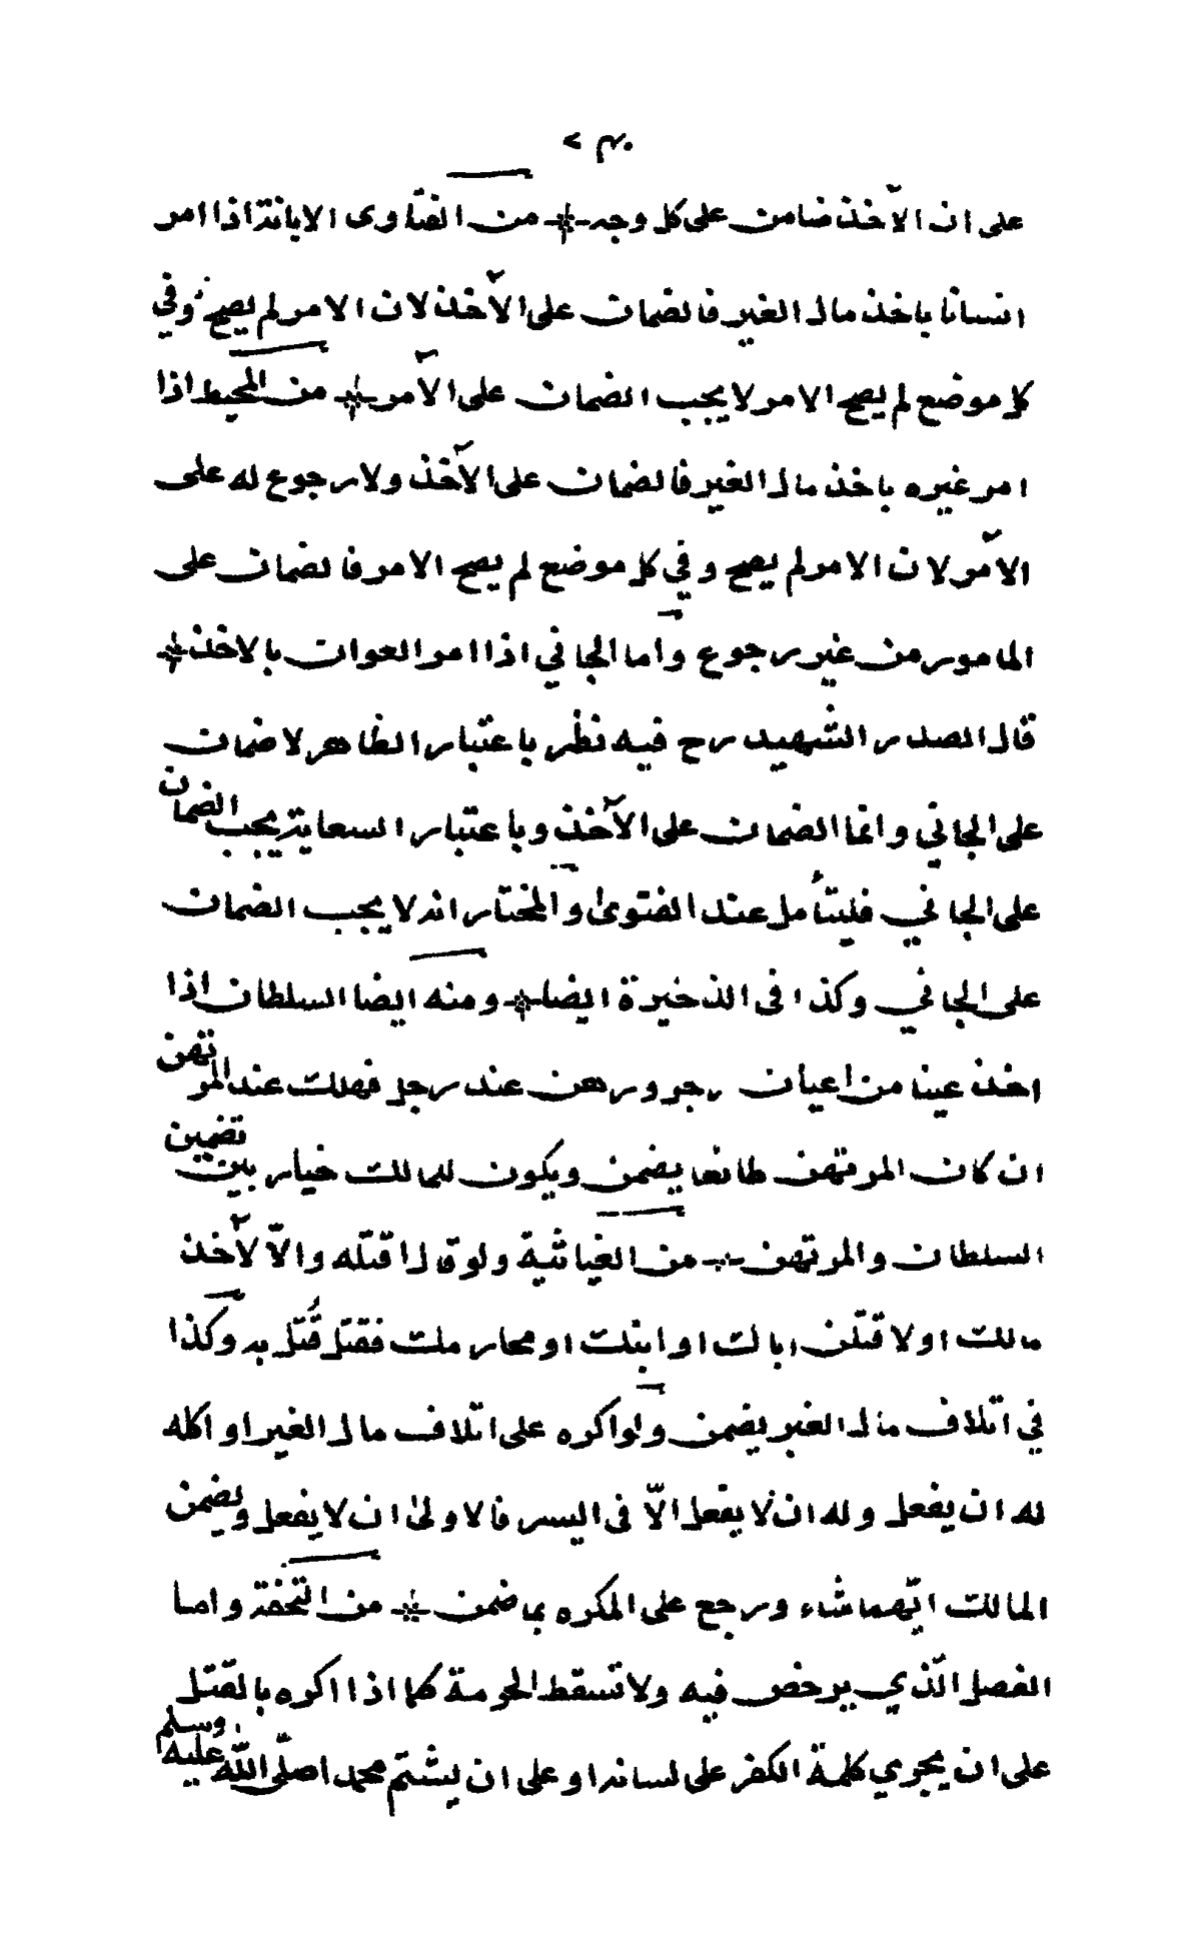 على ان الآخذ ضامن على كل وجه من الفتاوى الابانة اذا امر
انسانا باخذ مال الغير فالضمان على الآخذ لان الامر لم يصح وفي
كل موضع لم يصح الامر لا يجب الضمان على الآمر من المحيط اذا
امر غيره باخذ مال الغير فالضمان على الآخذ ولا رجوع له على
الآمر لان الامر لم يصح وفي كل موضع لم يصح الامر فالضمان على
المامور من غير رجوع واما الجاني اذا امر العوان بالاخذ
قال الصدر الشهيد رح فيه نظر باعتبار الظاهر لا ضمان
على الجاني وانما الضمان على الآخذ وباعتبار السعاية يجب الضمان
على الجاني فليتأمل عند الفتوى والمختار انه لا يجب الضمان
على الجاني وكذا في الذخيرة ايضا ومنه ايضا السلطان اذا
اخذ عينا من اعيان رجل ورهن عند رجل فهلك عند المرتهن
ان كان المرتهن طائعا يضمن ويكون للمالك خيار بين تضمين
السلطان والمرتهن من الغياثية ولو قال اقتله والّا لآخذ
مالك او لاقتلن اباك او ابنك او محارمك فقتل قُتل به وكذا
في اتلاف مال الغير يضمن ولو اكره على اتلاف مال الغير او اكله
له ان يفعل وله ان لا يفعل الّا في اليسر فالاولى ان لا يفعل ويضمن
المالك ايّهما شاء ورجع على المكره بما ضمن من التحفة واما
الفصل الّذي يرخص فيه ولا تسقط الحرمة كما اذا اكره بالقتل
على ان يجري كلمة الكفر على لسانه او على ان يشتم محمدا صلّى اللّه عليه وسلم